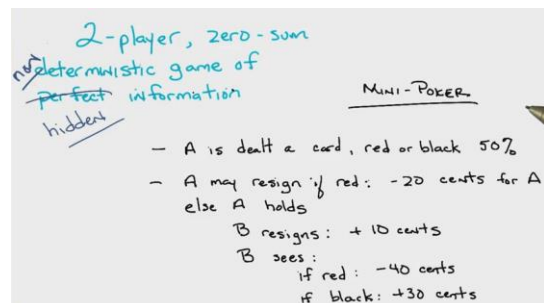 2-player, zero-sum
non
deterministic game of
perfect information
hidden
MINI-POKER
- A is dealt a card, red or black 50%
- A may resign if red: -20 cents for A
else A holds
B resigns: +10 cents
B sees:
if red: -40 cents
if black: +30 cents